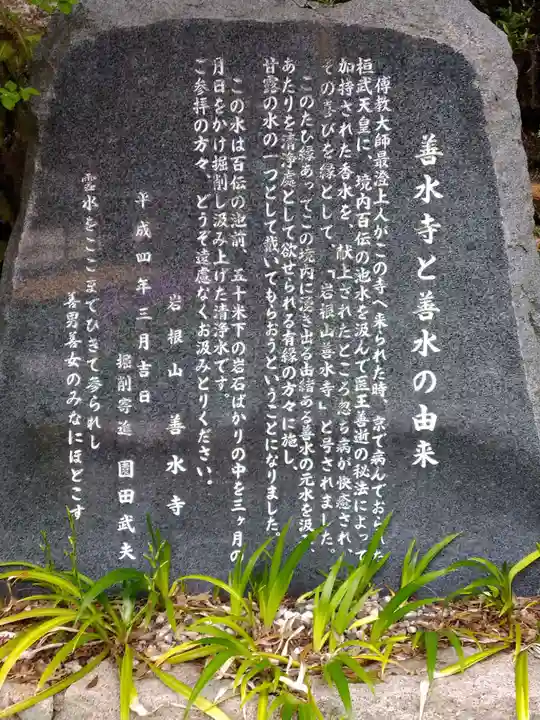 善水寺と善水の由来
傳教大師最澄上人がこの寺へ来られた時、京で病んでおられた
桓武天皇に、境内百伝の池水を汲んで医王善逝の秘法によって
加持された香水を、献上されたところ忽ち病が快癒され、
その喜びを縁として、『岩根山善水寺』と号されました。
このたび縁あってこの境内に湧き出る由緒ある善水の元水を汲み、
あたりを清浄處として欲せられる有縁の方々に施し、
甘露の水の一つとして戴いてもらおうということになりました。
この水は百伝の池前、五十米下の岩石ばかりの中を三ヶ月の
月日をかけ掘削し汲み上げた清浄水です。
ご参拝の方々、どうぞ遠慮なくお汲みとりください。
岩根山 善水寺
平成四年三月吉日
掘削寄進 園田武夫
霊水をここまでひきて参られし
善男善女のみなにほどこす